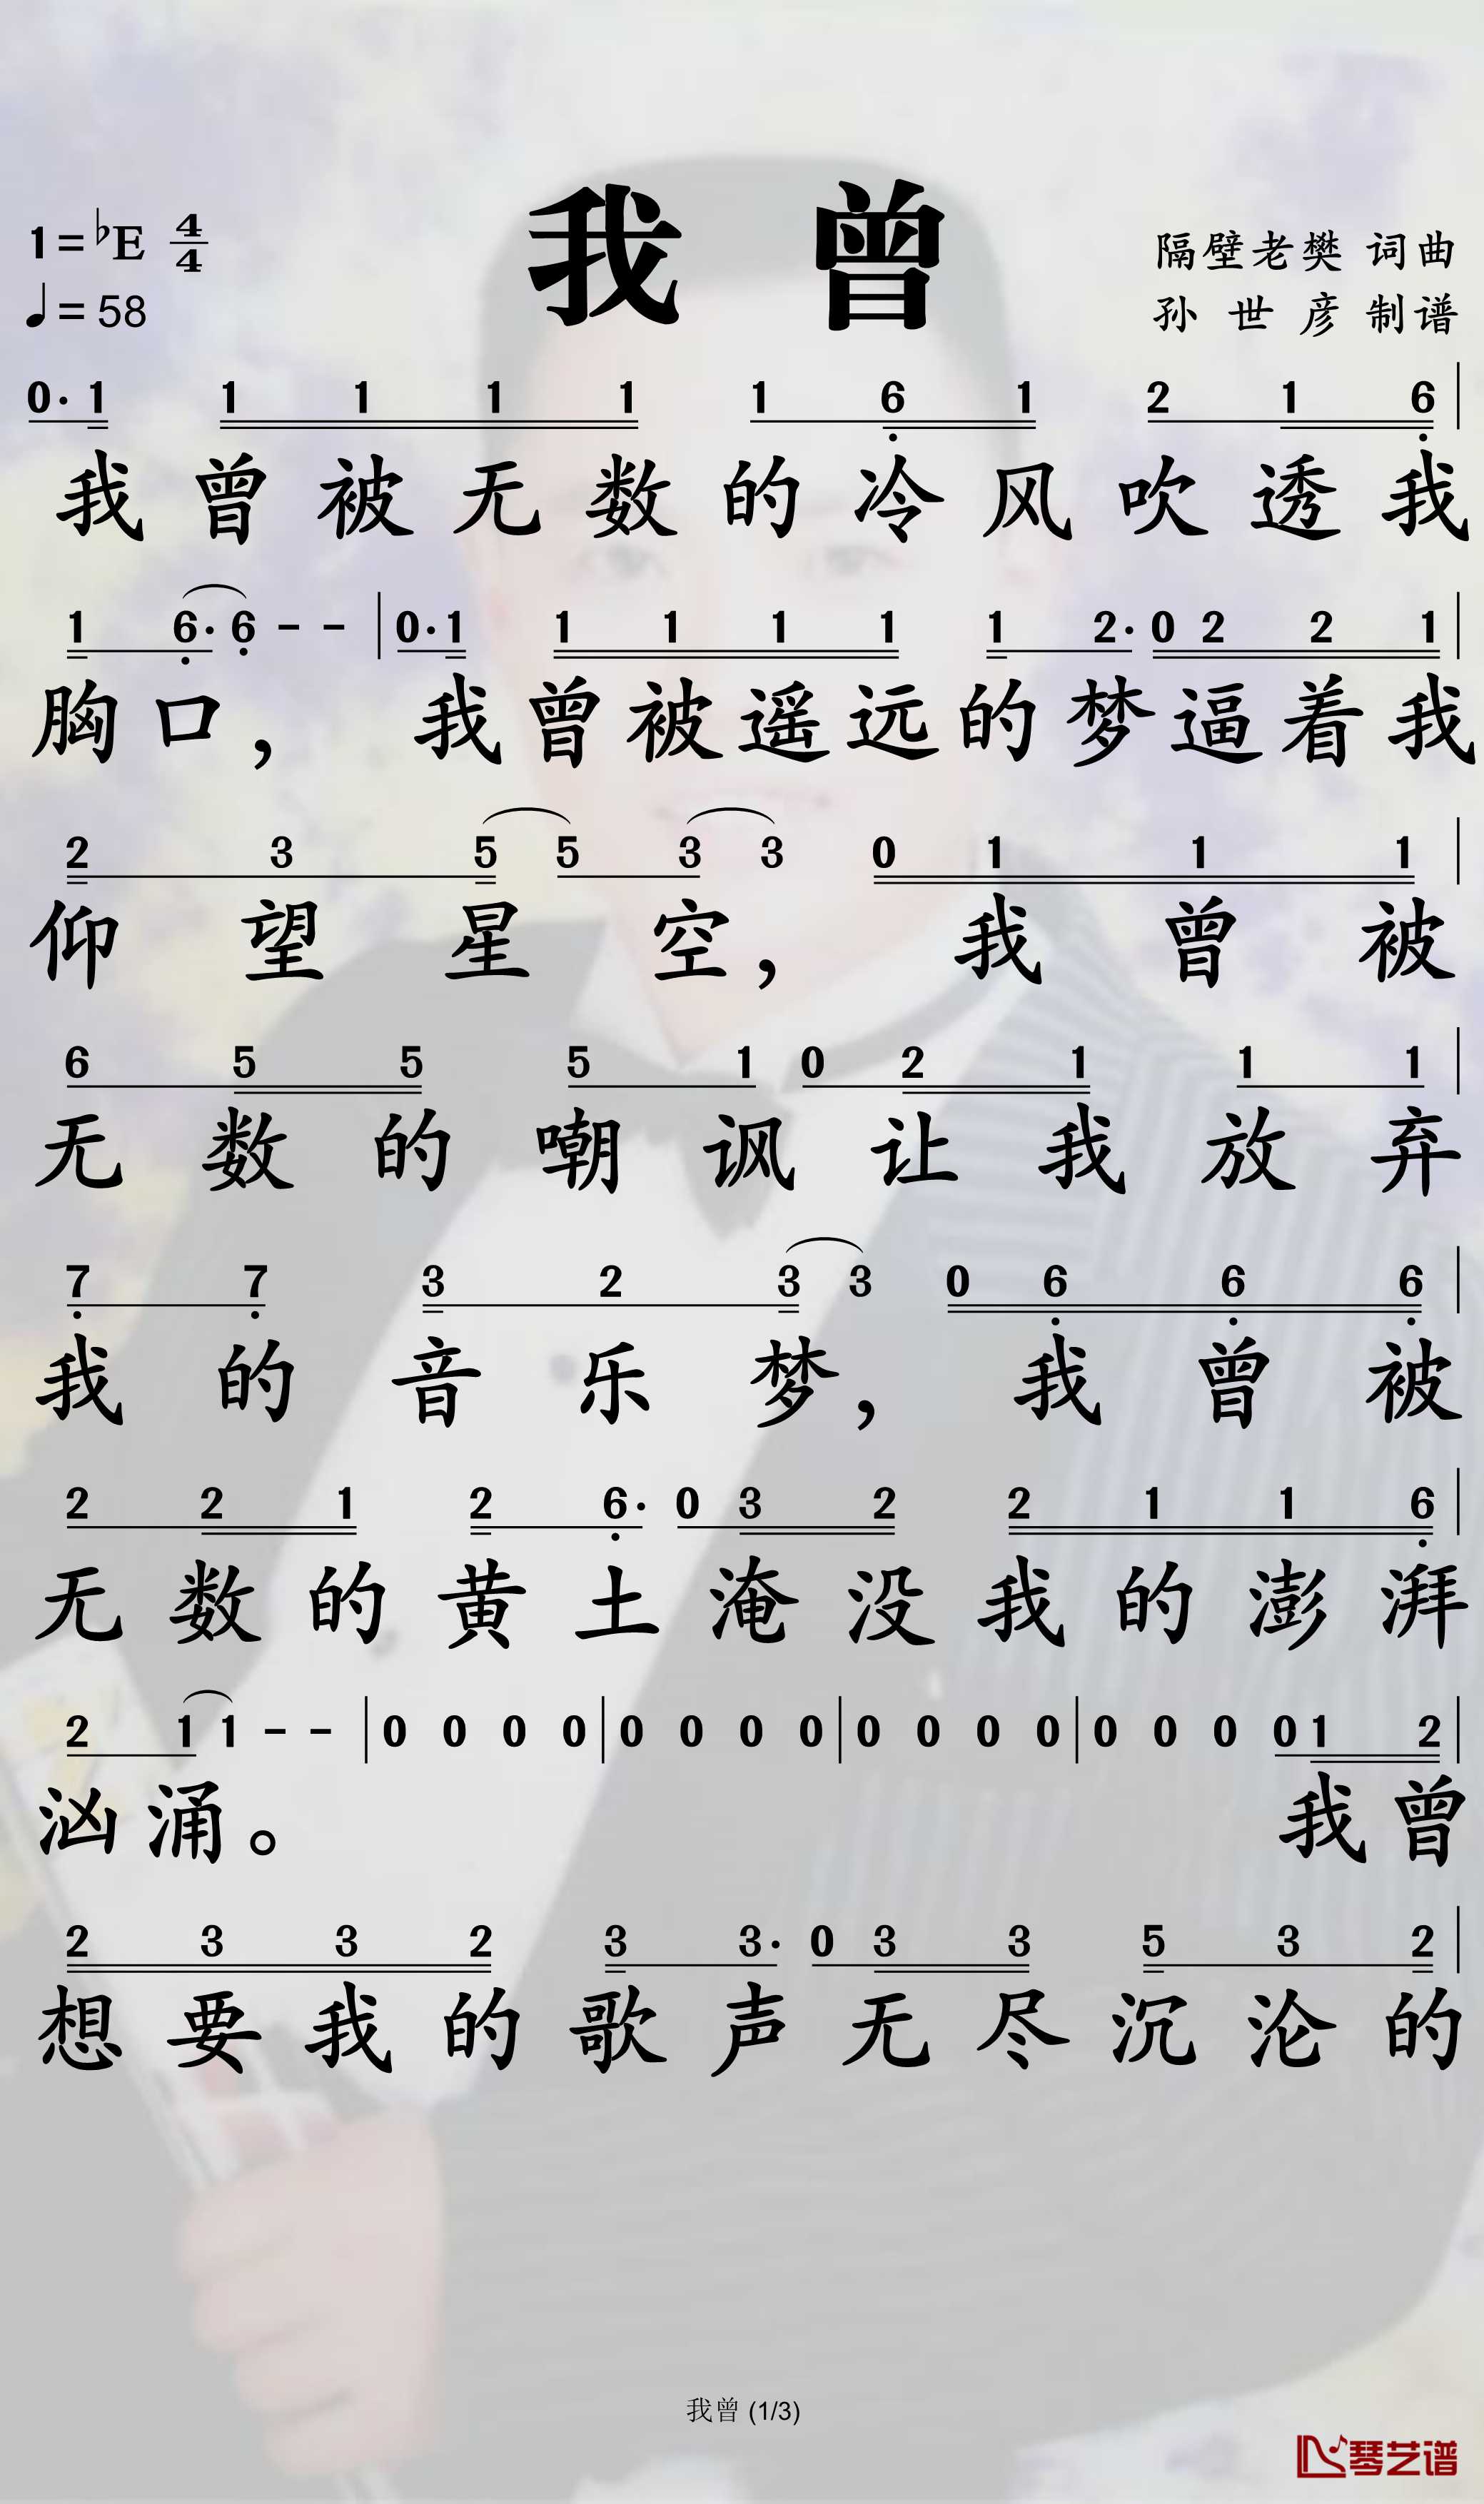 我 曾
1=♭E 4/4
♩=58
隔壁老樊 词曲
孙 世 彦 制谱
0· 1 1 1 1 1 1 6 1 2 1 6 |
我 曾 被 无 数 的 冷 风 吹 透 我
1 6· 6 - - | 0· 1 1 1 1 1 1 2· 0 2 2 1 |
胸 口， 我 曾 被 遥 远 的 梦 逼 着 我
2 3 5 5 3 3 0 1 1 1 |
仰 望 星 空， 我 曾 被
6 5 5 5 1 0 2 1 1 1 |
无 数 的 嘲 讽 让 我 放 弃
7 7 3 2 3 3 0 6 6 6 |
我 的 音 乐 梦， 我 曾 被
2 2 1 2 6· 0 3 2 2 1 1 6 |
无 数 的 黄 土 淹 没 我 的 澎 湃
2 1 1 - - | 0 0 0 0 | 0 0 0 0 | 0 0 0 0 | 0 0 0 0 1 2 |
汹 涌。 我 曾
2 3 3 2 3 3· 0 3 3 5 3 2 |
想 要 我 的 歌 声 无 尽 沉 沦 的
我曾 (1/3)
琴艺谱